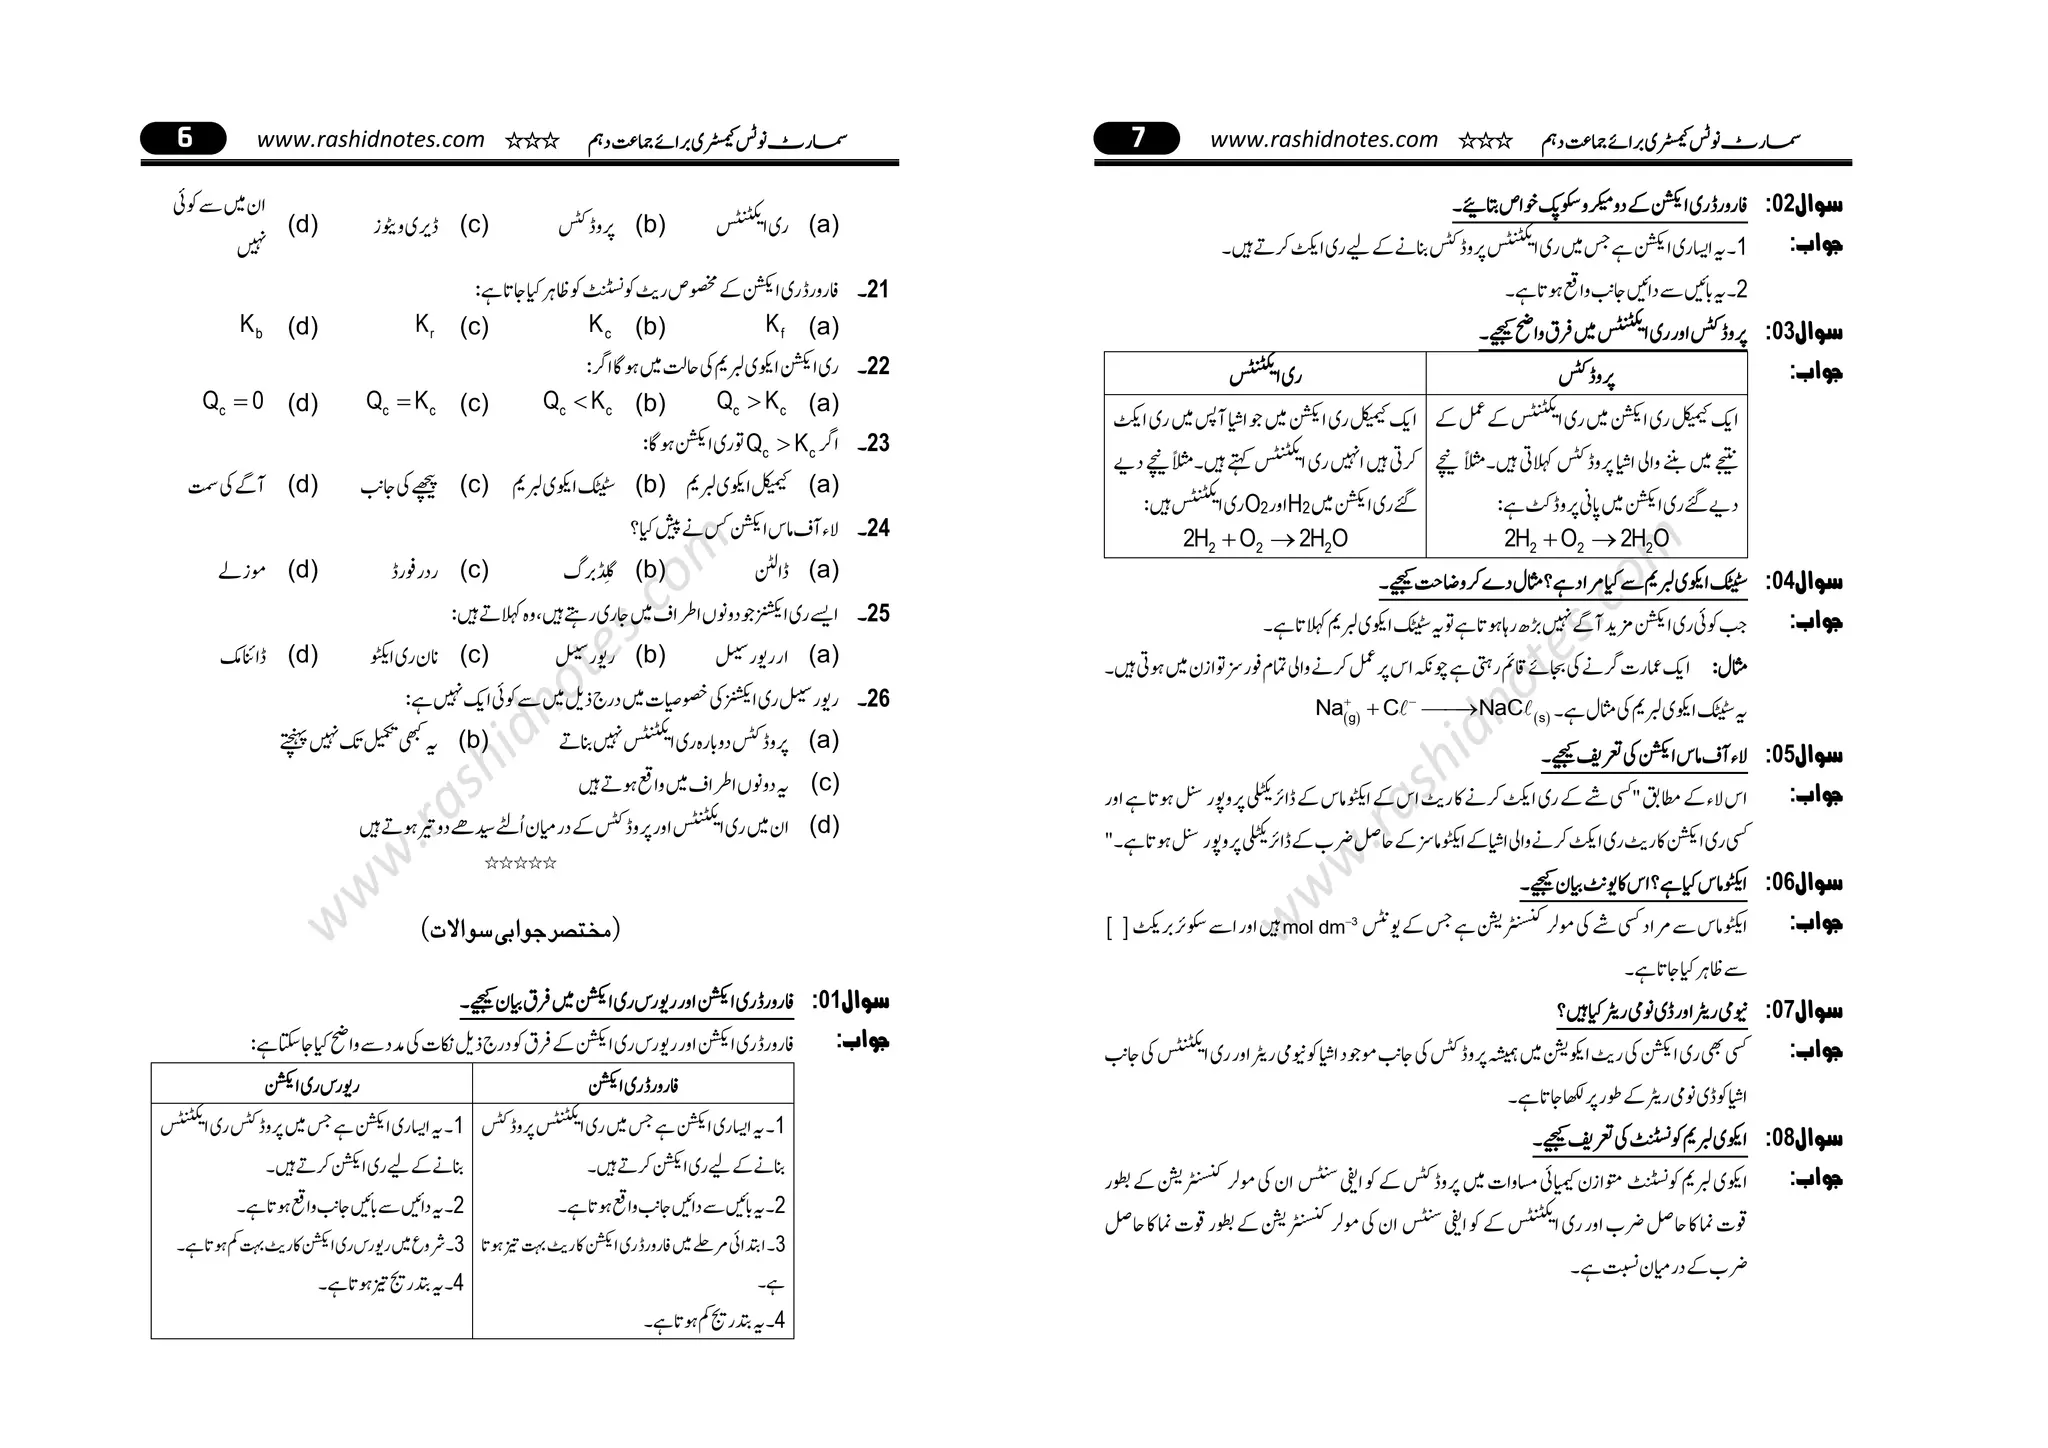 6 www.rashidnotes.com ☆☆☆ سمارٹ نوٹس کیمسٹری برائے جماعت دہم
(a) ری ایکٹنٹس (b) پروڈکٹس (c) ڈیری ویٹوز (d) ان میں سے کوئی نہیں
21۔ فارورڈ ری ایکشن کے مخصوص ریٹ کونسٹنٹ کو ظاہر کیا جاتا ہے:
(a) Kf (b) Kc (c) Kr (d) Kb
22۔ ری ایکشن ایکوی لبریم کی حالت میں ہوگا اگر:
(a) Qc > Kc (b) Qc < Kc (c) Qc = Kc (d) Qc = 0
23۔ اگر Qc > Kc تو ری ایکشن ہوگا:
(a) کیمیکل ایکوی لبریم (b) سٹیٹک ایکوی لبریم (c) پیچھے کی جانب (d) آگے کی سمت
24۔ لاء آف ماس ایکشن کس نے پیش کیا؟
(a) ڈالٹن (b) گلڈبرگ (c) ردرفورڈ (d) موزلے
25۔ ایسے ری ایکشنز جو دونوں اطراف میں جاری رہتے ہیں، وہ کہلاتے ہیں:
(a) ارریورسیبل (b) ریورسیبل (c) نان ری ایکٹو (d) ڈائنامک
26۔ ریورسیبل ری ایکشنز کی خصوصیات میں درج ذیل میں سے کوئی ایک نہیں ہے:
(a) پروڈکٹس دوبارہ ری ایکٹنٹس نہیں بناتے (b) یہ کبھی تکمیل تک نہیں پہنچتے
(c) یہ دونوں اطراف میں واقع ہوتے ہیں
(d) ان میں ری ایکٹنٹس اور پروڈکٹس کے درمیان اُلٹے سیدھے دو تیر ہوتے ہیں
☆☆☆☆☆
(مختصر جوابی سوالات)
سوال01: فارورڈ ری ایکشن اور ریورس ری ایکشن میں فرق بیان کیجیے۔
جواب: فارورڈ ری ایکشن اور ریورس ری ایکشن کے فرق کو درج ذیل نکات کی مدد سے واضح کیا جا سکتا ہے:
فارورڈ ری ایکشن
1۔ یہ ایسا ری ایکشن ہے جس میں ری ایکٹنٹس پروڈکٹس
بنانے کے لیے ری ایکشن کرتے ہیں۔
2۔ یہ بائیں سے دائیں جانب واقع ہوتا ہے۔
3۔ ابتدائی مرحلے میں فارورڈ ری ایکشن کا ریٹ بہت تیز ہوتا
ہے۔
4۔ یہ بتدریج کم ہوتا ہے۔
ریورس ری ایکشن
1۔ یہ ایسا ری ایکشن ہے جس میں پروڈکٹس ری ایکٹنٹس
بنانے کے لیے ری ایکشن کرتے ہیں۔
2۔ یہ دائیں سے بائیں جانب واقع ہوتا ہے۔
3۔ شروع میں ریورس ری ایکشن کا ریٹ بہت کم ہوتا ہے۔
4۔ یہ بتدریج تیز ہوتا ہے۔
www.rashidnotes.com
7 www.rashidnotes.com ☆☆☆ سمارٹ نوٹس کیمسٹری برائے جماعت دہم
سوال02: فارورڈ ری ایکشن کے دو میکروسکوپک خواص بتائیے۔
جواب: 1۔ یہ ایسا ری ایکشن ہے جس میں ری ایکٹنٹس پروڈکٹس بنانے کے لیے ری ایکٹ کرتے ہیں۔
2۔ یہ بائیں سے دائیں جانب واقع ہوتا ہے۔
سوال03: پروڈکٹس اور ری ایکٹنٹس میں فرق واضح کیجیے۔
جواب:
پروڈکٹس
ایک کیمیکل ری ایکشن میں ری ایکٹنٹس کے عمل کے
نتیجے میں بننے والی اشیا پروڈکٹس کہلاتی ہیں۔ مثلاً نیچے
دیے گئے ری ایکشن میں پانی پروڈکٹ ہے:
2H2 + O2 → 2H2O
ری ایکٹنٹس
ایک کیمیکل ری ایکشن میں جو اشیا آپس میں ری ایکٹ
کرتی ہیں انہیں ری ایکٹنٹس کہتے ہیں۔ مثلاً نیچے دیے
گئے ری ایکشن میں H2 اور O2 ری ایکٹنٹس ہیں:
2H2 + O2 → 2H2O
سوال04: سٹیٹک ایکوی لبریم سے کیا مراد ہے؟ مثال دے کر وضاحت کیجیے۔
جواب: جب کوئی ری ایکشن مزید آگے نہیں بڑھ رہا ہوتا ہے تو یہ سٹیٹک ایکوی لبریم کہلاتا ہے۔
مثال: ایک عمارت گرنے کی بجائے قائم رہتی ہے چونکہ اس پر عمل کرنے والی تمام فورسز توازن میں ہوتی ہیں۔
یہ سٹیٹک ایکوی لبریم کی مثال ہے۔ Na⁺(g) + Cℓ⁻ ⟶ NaCℓ(s)
سوال05: لاء آف ماس ایکشن کی تعریف کیجیے۔
جواب: اس لاء کے مطابق "کسی شے کے ری ایکٹ کرنے کا ریٹ اس کے ایکٹو ماس کے ڈائریکٹلی پروپورشنل ہوتا ہے اور
کسی ری ایکشن کا ریٹ ری ایکٹ کرنے والی اشیا کے ایکٹو ماسز کے حاصل ضرب کے ڈائریکٹلی پروپورشنل ہوتا ہے۔"
سوال06: ایکٹو ماس کیا ہے؟ اس کا یونٹ بیان کیجیے۔
جواب: ایکٹو ماس سے مراد کسی شے کی مولر کنسنٹریشن ہے جس کے یونٹس mol dm⁻³ ہیں اور اسے سکوئر بریکٹ [ ]
سے ظاہر کیا جاتا ہے۔
سوال07: نیومی ریٹر اور ڈی نومی ریٹر کیا ہیں؟
جواب: کسی بھی ری ایکشن کی ریٹ ایکویشن میں ہمیشہ پروڈکٹس کی جانب موجود اشیا کو نیومی ریٹر اور ری ایکٹنٹس کی جانب
اشیا کو ڈی نومی ریٹر کے طور پر لکھا جاتا ہے۔
سوال08: ایکوی لبریم کونسٹنٹ کی تعریف کیجیے۔
جواب: ایکوی لبریم کونسٹنٹ متوازن کیمیائی مساوات میں پروڈکٹس کے کو ایفی سنٹس ان کی مولر کنسنٹریشن کے بطور
قوت نما کا حاصل ضرب اور ری ایکٹنٹس کے کو ایفی سنٹس ان کی مولر کنسنٹریشن کے بطور قوت نما کا حاصل
ضرب کے درمیان نسبت ہے۔
www.rashidnotes.com